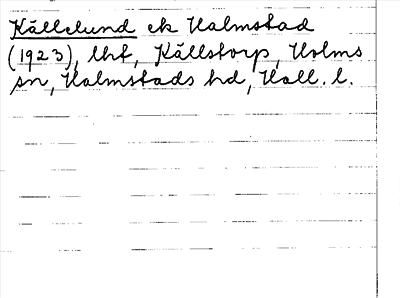 Källelund ek Halmstad
(1923), lht, Källstorp, Holms
sn, Halmstads hd, Hall. l.